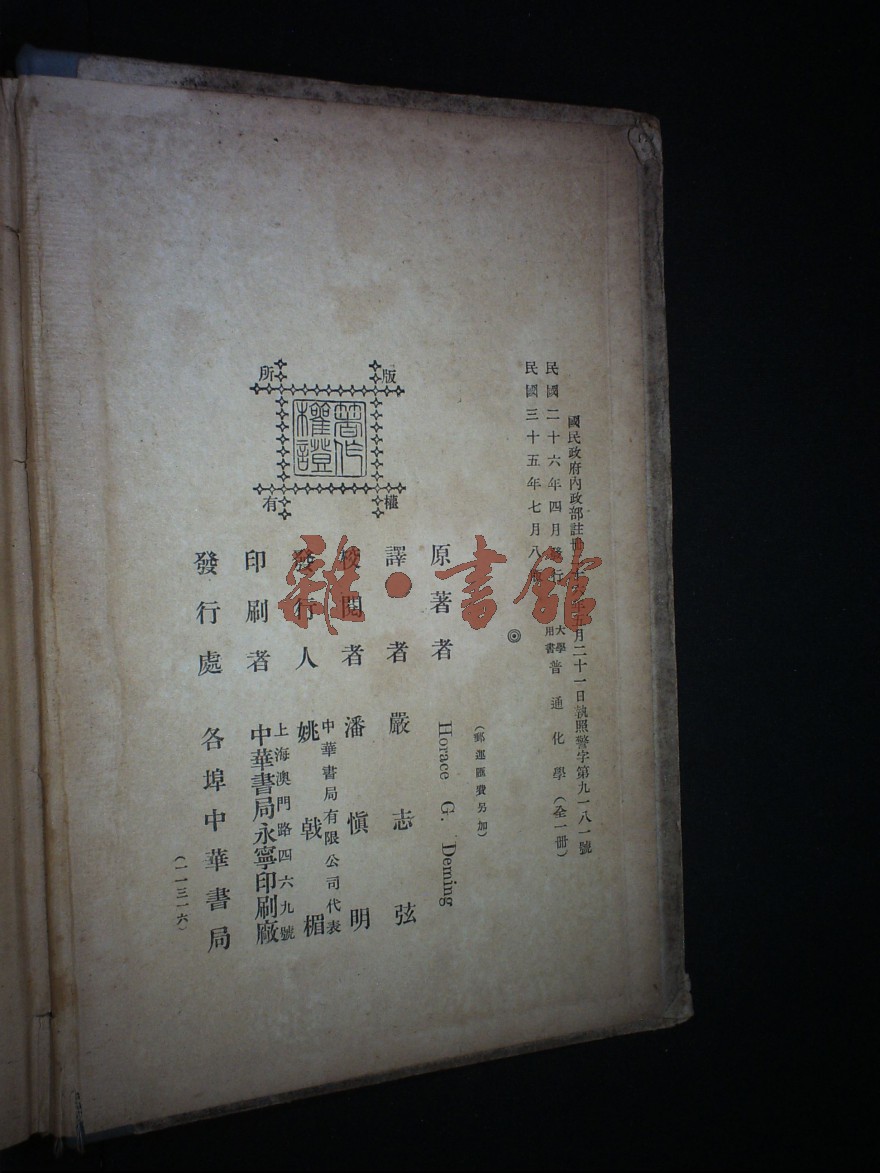 國民政府內政部註冊 十六年五月二十一日執照警字第九一八一號
民國二十六年四月發行
民國三十五年七月八版
大學用書 普通化學（全一冊）
◎
（郵運匯費另加）
原著者 Horace G. Deming
譯者 嚴志弦
校閱者 潘慎明
發行人 姚戟楣
中華書局有限公司代表
印刷者 中華書局永寧印刷廠
上海澳門路四六九號
發行處 各埠中華書局
（一一三一六）
版權所有
著作權證
雜·書館